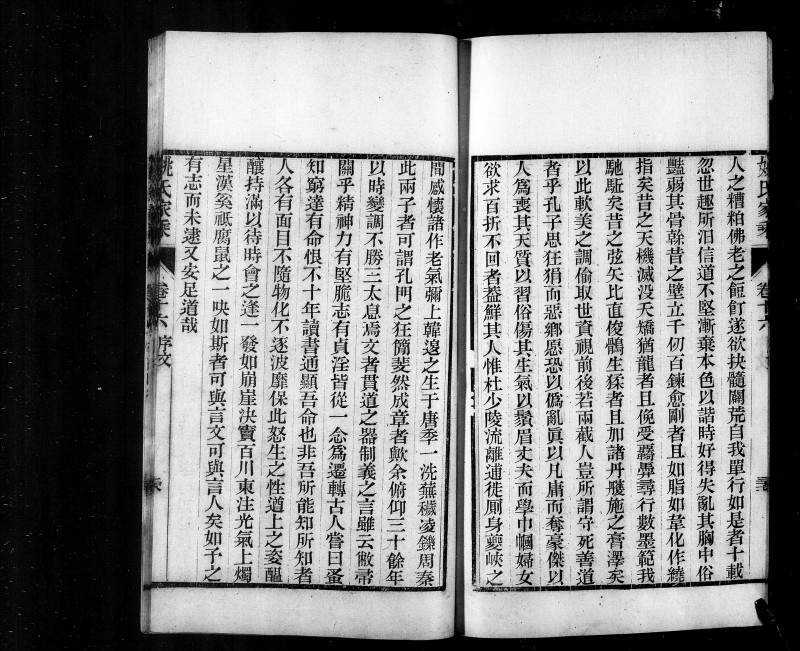 姚氏家乘 卷十六
人之糟粕佛老之飣餖遂欲抉髓闢荒自我單行如是者十載
忽世趣所汨信道不堅漸棄本色以諧時好得失亂其胸中俗
豔弱其骨榦昔之壁立千仞百鍊愈剛者且如脂如韋化作繞
指矣昔之天機滅没天矯猶龍者且俛受羈馽尋行數墨範我
馳駈矣昔之弦矢比直俊鶻生猱者且加諸丹雘施之膏澤矣
以此軟美之調偷取世資視前後若兩截人豈所謂守死善道
者乎孔子思狂狷而惡鄉愿恐以僞亂眞以凡庸而奪豪傑以
人爲喪其天質以習俗傷其生氣以鬚眉丈夫而學巾幗婦女
欲求百折不回者葢鮮其人惟杜少陵流離逋徒厠身夔峽之
間感懷諸作老氣彌上韓遠之生于唐季一洗蕪穢凌鑠周秦
此兩子者可謂孔門之狂簡斐然成章者歟余俯仰三十餘年
以時變調不勝三太息焉文者貫道之器制義之言雖云敝帚
關乎精神力有堅脆志有貞淫皆從一念爲遷轉古人嘗曰蚤
知窮達有命恨不十年讀書通顯吾命也非吾所能知所知者
人各有面目不隨物化不逐波靡保此怒生之性道上之姿醞
釀持滿以待時會之逢一發如崩崖決竇百川東注光氣上燭
星漢奚祗腐鼠之一吷如斯者可與言文可與言人矣如予之
有志而未逮又安足道哉
姚氏家乘 卷十六 序文